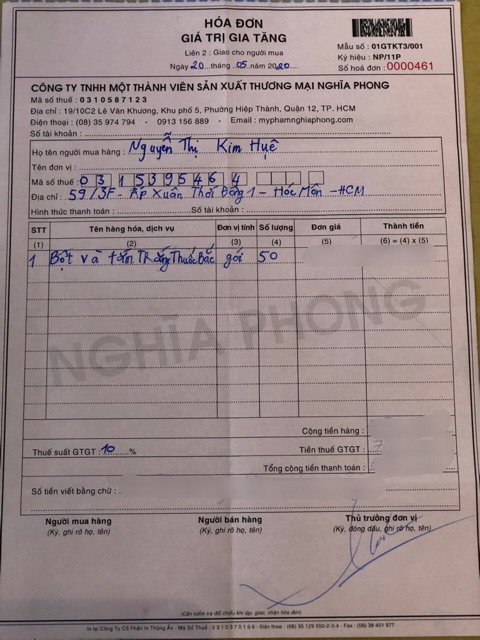 HÓA ĐƠN
GIÁ TRỊ GIA TĂNG
Liên 2 : Giao cho người mua
Ngày 20 tháng 05 năm 2020
Mẫu số : 01GTKT3/001
Ký hiệu : NP/11P
Số hoá đơn : 0000461
CÔNG TY TNHH MỘT THÀNH VIÊN SẢN XUẤT THƯƠNG MẠI NGHĨA PHONG
Mã số thuế : 0310587123
Địa chỉ : 19/10C2 Lê Văn Khương, Khu phố 5, Phường Hiệp Thành, Quận 12, TP. HCM
Điện thoại : (08) 35 974 794 - 0913 156 889 - Email : myphamnghiaphong.com
Số tài khoản :
Họ tên người mua hàng : Nguyễn Thị Kim Huệ
Tên đơn vị :
Mã số thuế : 0315395464
Địa chỉ : 59/3F - Ấp Xuân Thới Đông 1 - Hóc Môn - HCM
Hình thức thanh toán : Số tài khoản :
STT Tên hàng hóa, dịch vụ Đơn vị tính Số lượng Đơn giá Thành tiền
(1) (2) (3) (4) (5) (6) = (4) x (5)
1 Bột và tắm Trắng Thuốc Bắc gói 50
NGHĨA PHONG
Cộng tiền hàng :
Thuế suất GTGT : 10 % Tiền thuế GTGT :
Tổng cộng tiền thanh toán :
Số tiền viết bằng chữ :
Người mua hàng Người bán hàng Thủ trưởng đơn vị
(Ký, ghi rõ họ, tên) (Ký, ghi rõ họ, tên) (Ký, đóng dấu, ghi rõ họ, tên)
(Cần kiểm tra đối chiếu khi lập, giao, nhận hóa đơn)